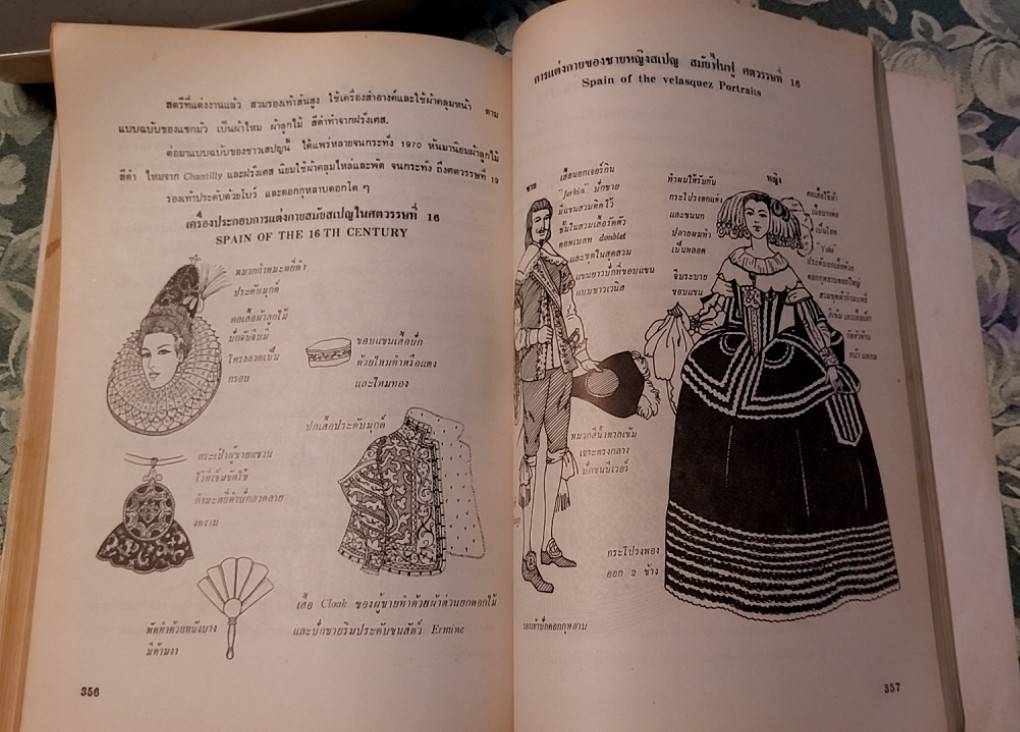 สตรีที่แต่งงานแล้ว สวมรองเท้าส้นสูง ใช้เครื่องสำอางค์และใช้ผ้าคลุมหน้า ตาม
แบบฉบับของแขกมัว เป็นผ้าไหม ผ้าลูกไม้ สีดำทำจากฝรั่งเศส.
ต่อมาแบบฉบับของชาวเสปญนี้ ได้แพร่หลายจนกระทั่ง 1970 หันมานิยมผ้าลูกไม้
สีดำ ไหมจาก Chantilly และฝรั่งเศส นิยมใช้ผ้าคลุมไหล่และพัด จนกระทั่ง ถึงศตวรรษที่ 19
รองเท้าประดับด้วยโบว์ และดอกกุหลาบดอกโต ๆ
เครื่องประกอบการแต่งกายสมัยสเปญในศตวรรษที่ 16
SPAIN OF THE 16 TH CENTURY
หมวกกำมะหยี่ดำ
ประดับมุกด์
คอเสื้อผ้าลูกไม้
ปักจับจีบมี
โครงลวดเป็น
กรอบ
ขอบแขนเสื้อปัก
ด้วยไหมดำหรือแดง
และไหมทอง
ปกเสื้อประดับมุกด์
กระเป๋าผู้ชายแขวน
ไว้ที่เข็มขัดใช้
กำมะหยี่ดำปักลวดลาย
งดงาม
พัดทำด้วยหนังบาง
มีด้ามงา
เสื้อ Cloak ของผู้ชายทำด้วยผ้าต่วนยกดอกไม้
และปักชายริมประดับขนสัตว์ Ermine
356
การแต่งกายของชายหญิงสเปญ สมัยฟื้นฟู ศตวรรษที่ 16
Spain of the velasquez Portraits
ชาย
เสื้อนอกเจอร์กิน
"Jerkin" ปักชาย
มีแขนสวมติดไว้
ชั้นในสวมเสื้อรัดตัว
ดอทเบลท doublet
และชุดในสุดสวม
แขนยาวปักที่ขอบแขน
แบบชาวเวนิส
หมวกสีน้ำตาลเข้ม
เจาะตรงกลาง
ปักขนบีเวอร์
หญิง
ทำผมให้รับกับ
กระโปรงตกแต่ง
และขนนก
ปลายผมทำ
เป็นหลอด
จีบระบาย
ขอบแขน
คอเสื้อใช้ผ้า
เป็นโยค
"Yoke"
ประดับนอกเสื้อด้วย
ดอกกุหลาบดอกใหญ่
หน้า
กระโปรงพอง
ออก 2 ข้าง
357